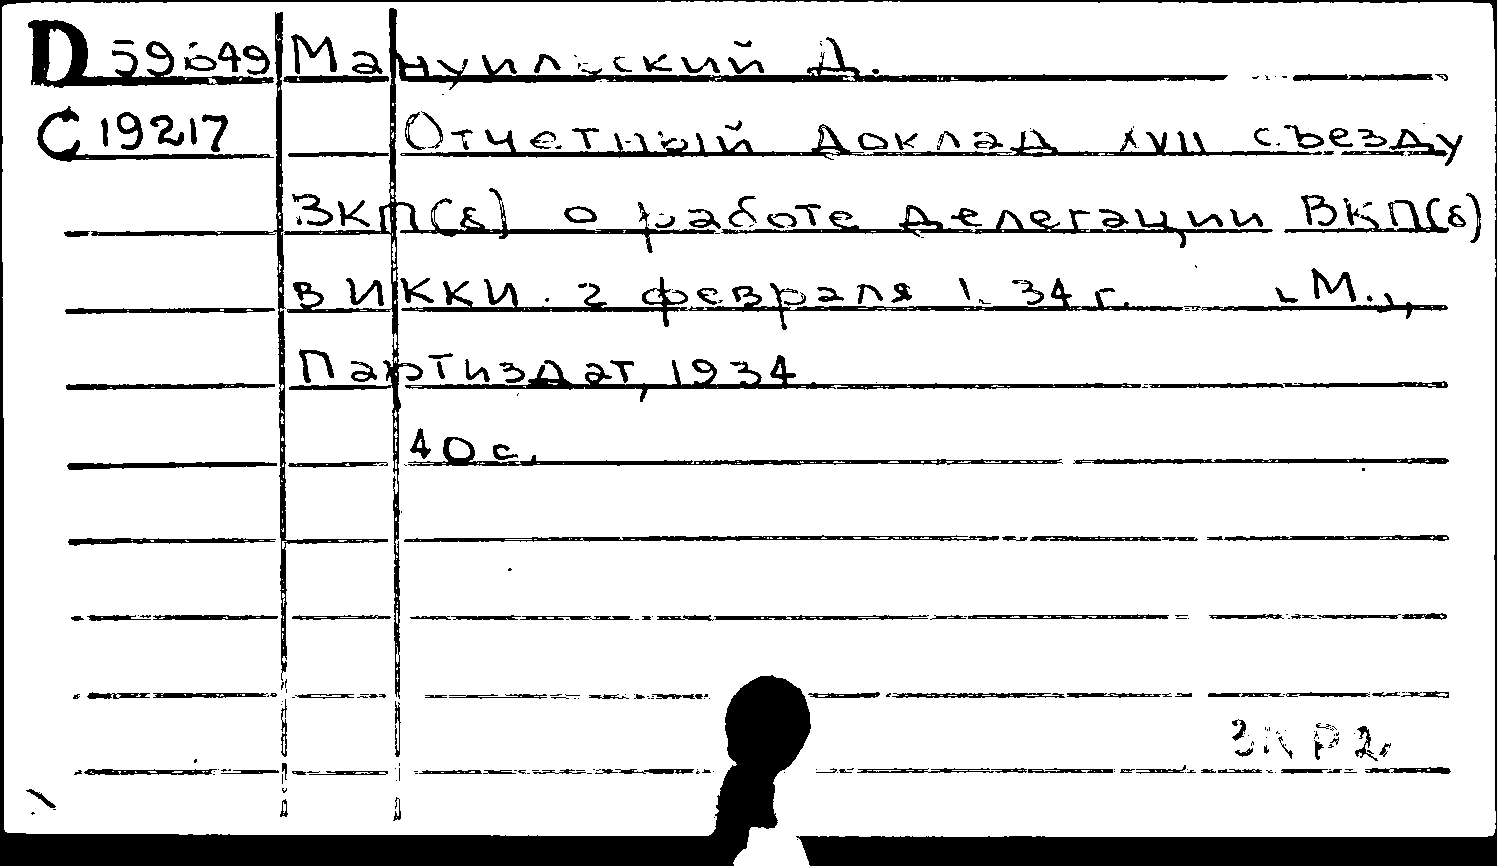 D 59649 Мануильский Д.
С 19217 Отчетный доклад XVII съезду
ВКП(б) о работе делегации ВКП(б)
в ИККИ. 2 февраля 1934 г. [М.],
Партиздат, 1934
40 с.